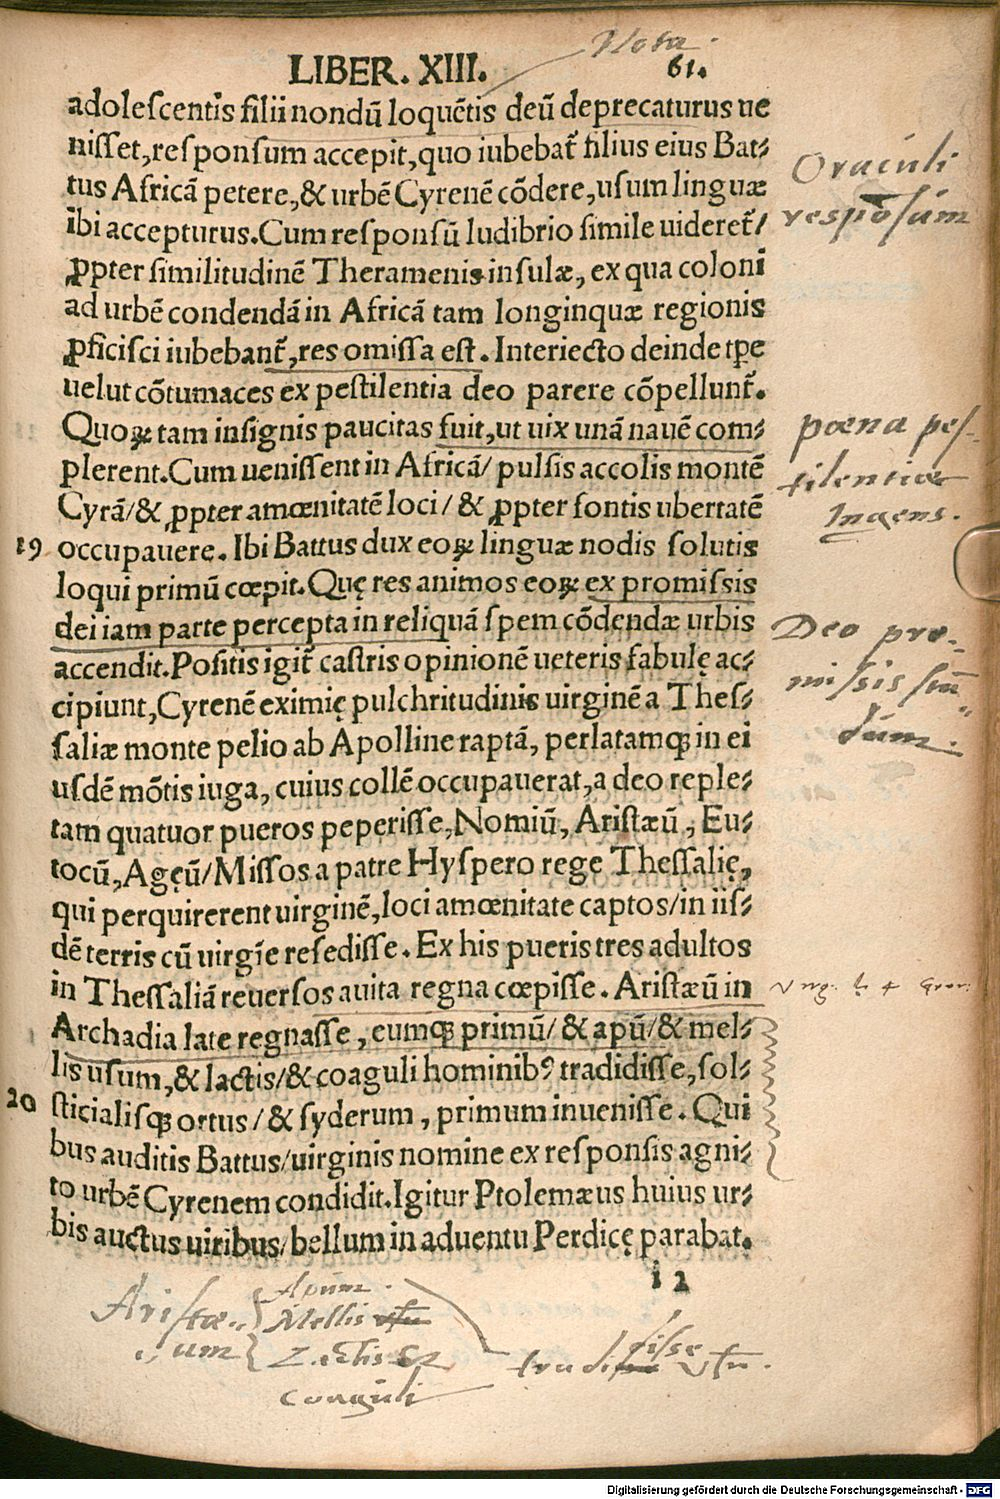 Nota.
LIBER. XIII. 61.
adolescentis filii nondũ loquẽtis deũ deprecaturus ue
nisset, responsum accepit, quo iubebat̃ filius eius Bat⸗
tus Africã petere, & urbẽ Cyrenẽ cõdere, usum linguæ
ibi accepturus. Cum responsũ ludibrio simile uideret̃/
ꝓpter similitudinẽ Theramenis insulæ, ex qua coloni
ad urbẽ condendã in Africã tam longinquæ regionis
ꝓficisci iubebant̃, res omissa est. Interiecto deinde tꝑe
uelut cõtumaces ex pestilentia deo parere cõpellunt̃.
Quoꝝ tam insignis paucitas fuit, ut uix unã nauẽ com⸗
plerent. Cum uenissent in Africã/ pulsis accolis montẽ
Cyrã/ & ꝓpter amœnitatẽ loci/ & ꝓpter fontis ubertatẽ
19 occupauere. Ibi Battus dux eoꝝ linguæ nodis solutis
loqui primũ cœpit. Quę res animos eoꝝ ex promissis
dei iam parte percepta in reliquã spem cõdendæ urbis
accendit. Positis igit̃ castris opinionẽ ueteris fabulę ac⸗
cipiunt, Cyrenẽ eximię pulchritudinis uirginẽ a Thes⸗
saliæ monte pelio ab Apolline raptã, perlatamqꝫ in ei
usdẽ mõtis iuga, cuius collẽ occupauerat, a deo reple⸗
tam quatuor pueros peperisse, Nomiũ, Aristæũ, Eu⸗
tocũ, Agęũ/ Missos a patre Hyspero rege Thessalię,
qui perquirerent uirginẽ, loci amœnitate captos/ in iis⸗
dẽ terris cũ uirgĩe resedisse. Ex his pueris tres adultos
in Thessaliã reuersos auita regna cœpisse. Aristæũ in
Archadia late regnasse, eumqꝫ primũ/ & apũ/ & mel⸗
lis usum, & lactis/ & coaguli hominibꝰ tradidisse, sol⸗
20 sticialisqꝫ ortus/ & syderum, primum inuenisse. Qui
bus auditis Battus/ uirginis nomine ex responsis agni⸗
to urbẽ Cyrenem condidit. Igitur Ptolemæus huius ur⸗
bis auctus uiribus/ bellum in aduentu Perdicę parabat.
i 2
Oraculi
respõsum
pœna pes-
tilentiæ
Ingens.
Deo pro-
missis
dum.
Aristæ
um
Apum.
Mellis
Lactis
coaguli
tradi
disse
Digitalisierung gefördert durch die Deutsche Forschungsgemeinschaft - DFG